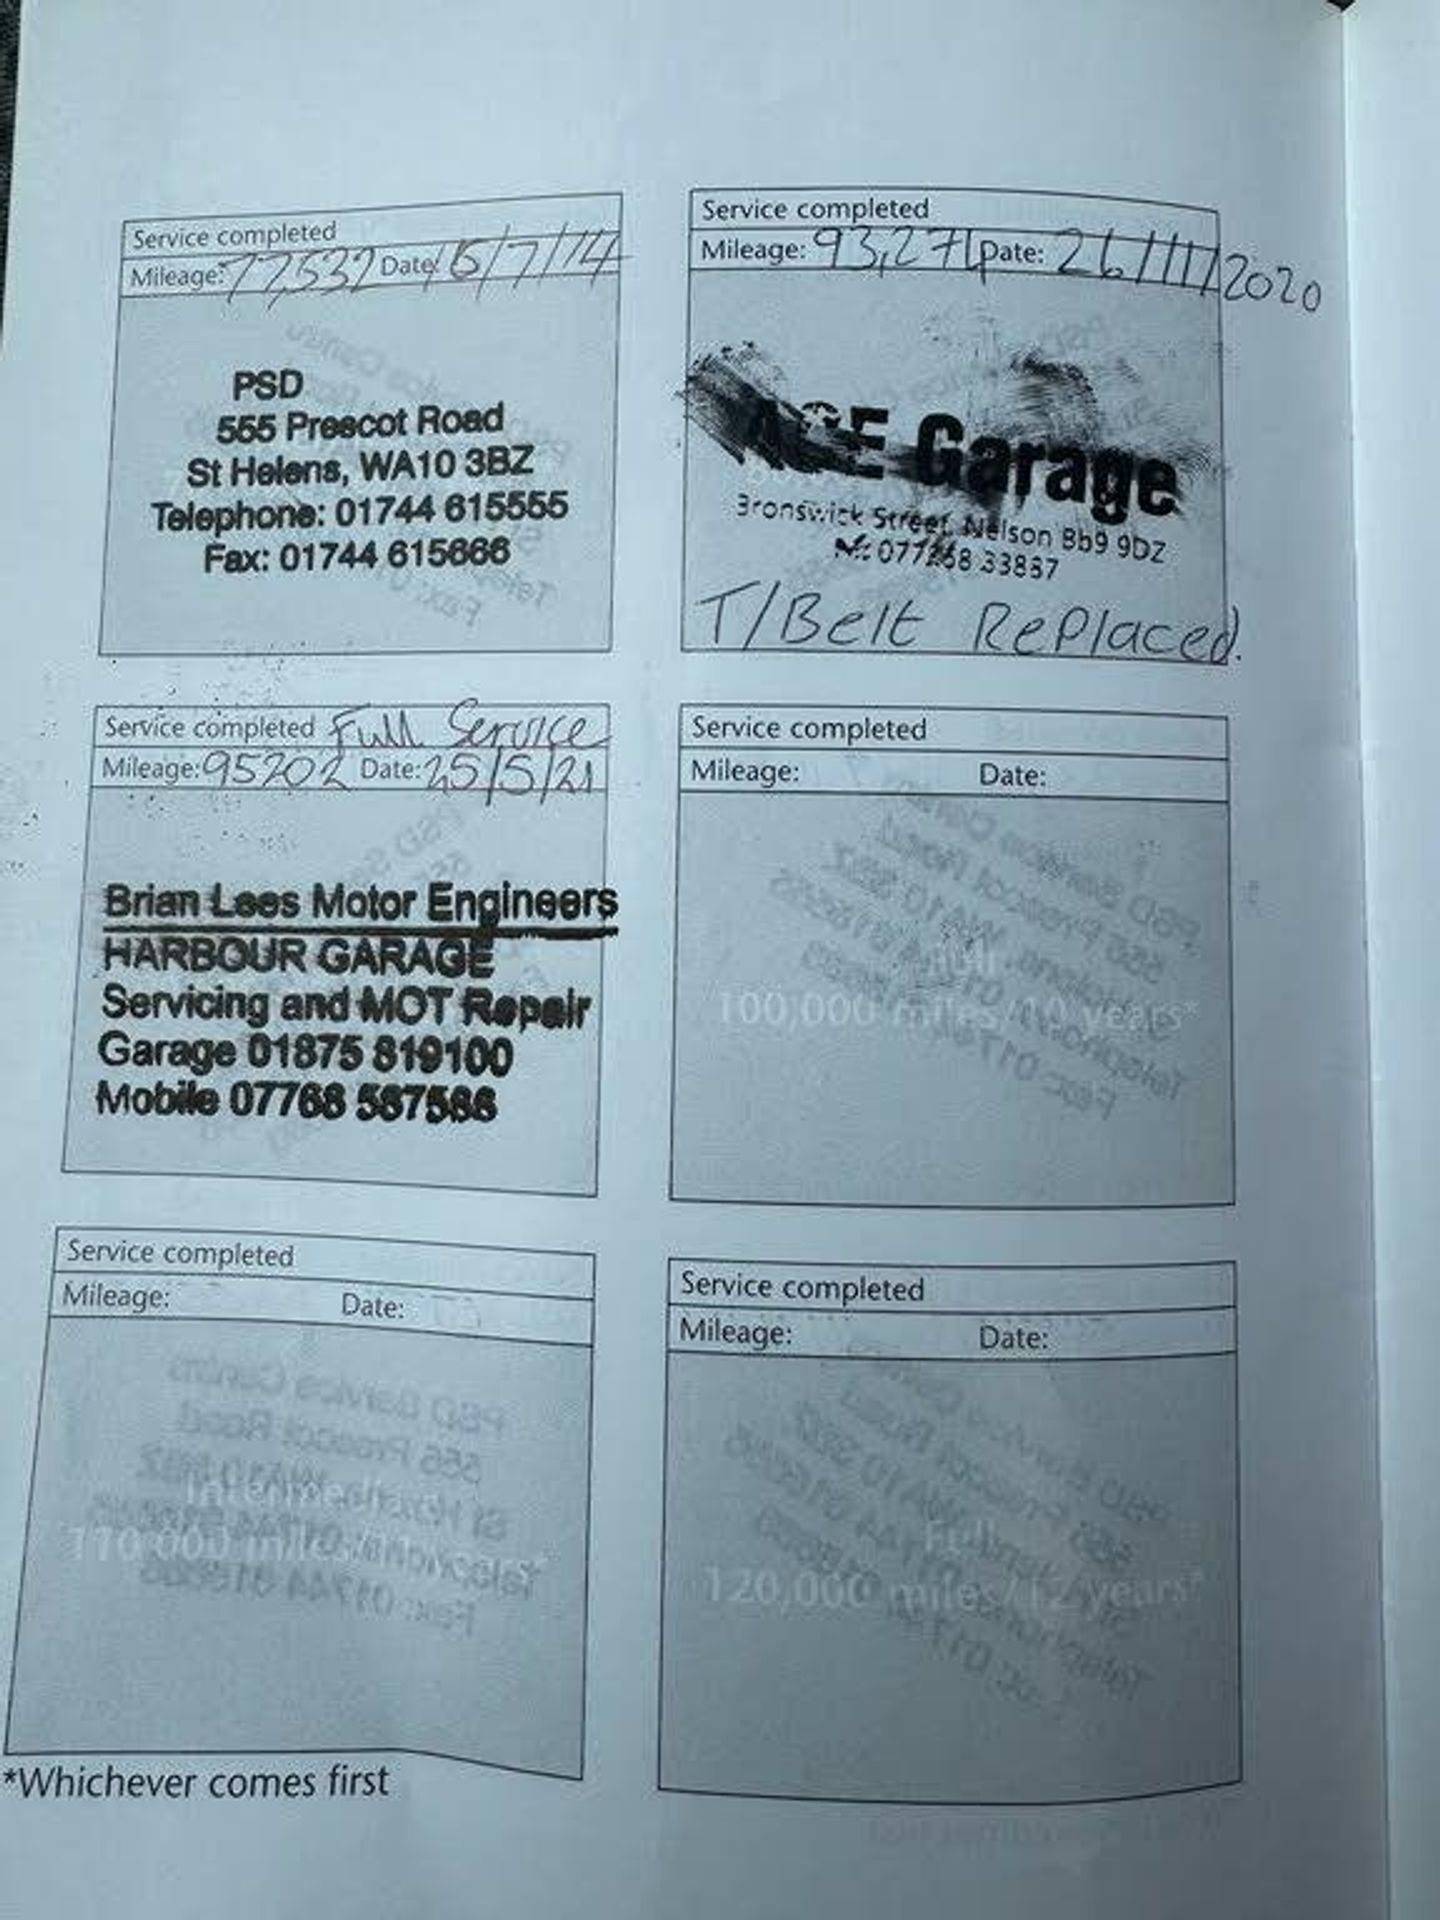 Service completed
Mileage: 77,532 Date: 15/7/14
PSD
555 Prescot Road
St Helens, WA10 3BZ
Telephone: 01744 615555
Fax: 01744 615666
Service completed
Mileage: 93,271 Date: 26/11/2020
Garage
Street, Nelson Bb9 9DZ
T/Belt Replaced.
Service completed Full Service
Mileage: 95202 Date: 25/5/21
Brian Lees Motor Engineers
HARBOUR GARAGE
Servicing and MOT Repair
Garage 01875 819100
Mobile 07768
Service completed
Mileage: Date:
Full
100,000 miles/10 years*
Service completed
Mileage: Date:
110,000 miles
Service completed
Mileage: Date:
Full
120,000 miles/12 years*
*Whichever comes first